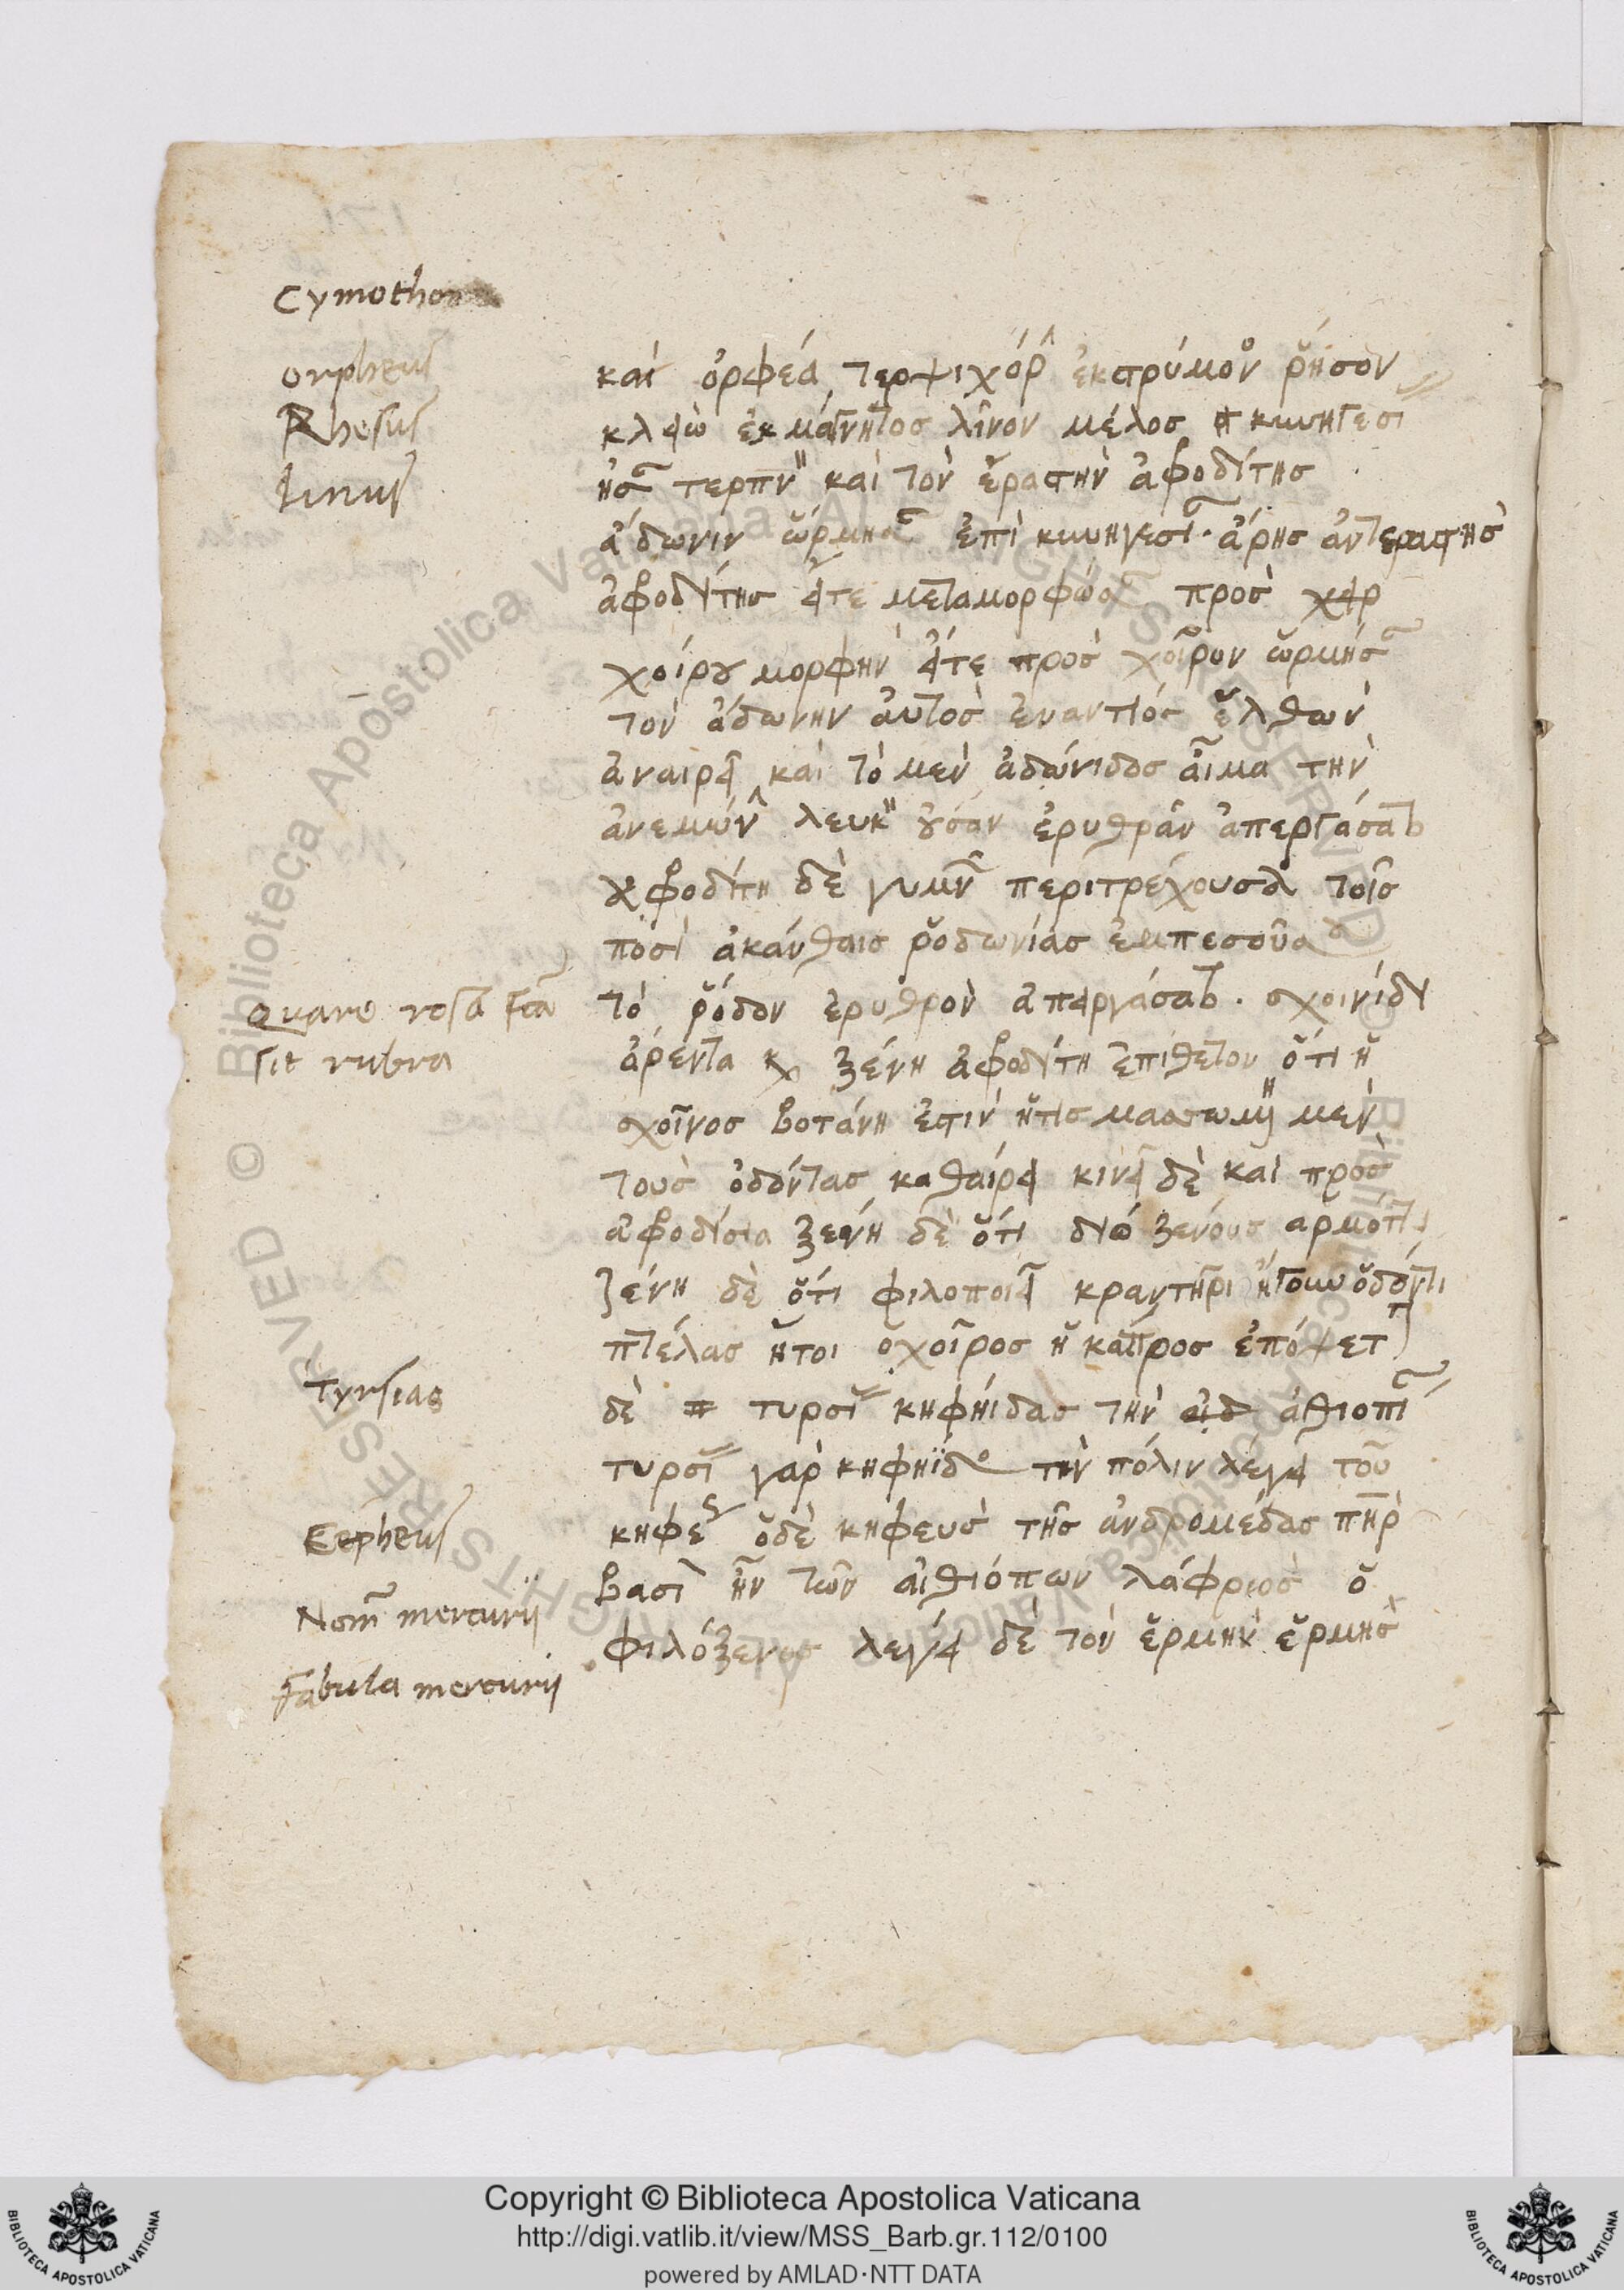 Cymotho
orpheus
Rhesus
Linus
και ὀρφέα τερψιχόρ ἐκ στρύμον ῥῆσον
κλειὼ ἐκ μάγνητος λίνον μέλος κυνηγεσι
ησ τερπν και τὸν ἐραστὴν ἀφροδίτης
ἀδωνιν ὥρμησ ἐπὶ κυνηγεσι · ἄρης ἀντεραστὴς
ἀφροδίτης εἴτε μεταμορφώσ πρὸς χειρ
χοίρου μορφὴν εἴτε πρὸς χοῖρον ὥρμησ
τὸν ἀδωνην αὐτὸς ἐναντίος ἐλθὼν
ἀναιρεῖ και τὸ μὲν ἀδώνιδος αἷμα τὴν
ἀνεμών λευκ οὖσαν ἐρυθρὰν ἀπεργάσατο
ἀφροδίτη δὲ γυμν περιτρέχουσα τοῖς
ποσὶ ἀκάνθαις ῥοδωνίας ἐμπεσοῦσα
Quare rosa fca
sit rubra
τὸ ῥόδον ἐρυθρὸν ἀπεργάσατο · σχοινίδι
ἀρέντα καὶ ξένη ἀφροδίτη ἐπίθετον ὅτι ἡ
σχοῖνος βοτάνη ἐστὶν ἥτις μασσωμ μὲν
τοὺς ὀδόντας καθαίρει κινεῖ δὲ καὶ πρὸς
ἀφροδίσια ξενη δὲ ὅτι διὼ ξενους αρμόττει
ξένη δὲ ὅτι φιλοποιεῖ κραντῆρι ἤτοι ὀδόντι
πτέλας ἤτοι ὁ χοῖρος ἢ κάπρος ἐπόψετ
Tyrsias
δὲ τυρσι κηφηίδας τὴν αιθιοπι
τυρσι γὰρ κηφηϊδ τὴν πόλιν λέγει τοῦ
Cepheus
κηφε ὁ δὲ κηφευς τῆς ἀνδρομέδας πηρ
βασι ἦν τῶν αἰθιόπων λάφριος ὁ
Nom mercurij
φιλόξενος λεγει δὲ τὸν ἑρμην ἑρμης
Fabula mercurij
Copyright © Biblioteca Apostolica Vaticana
http://digi.vatlib.it/view/MSS_Barb.gr.112/0100
powered by AMLAD·NTT DATA